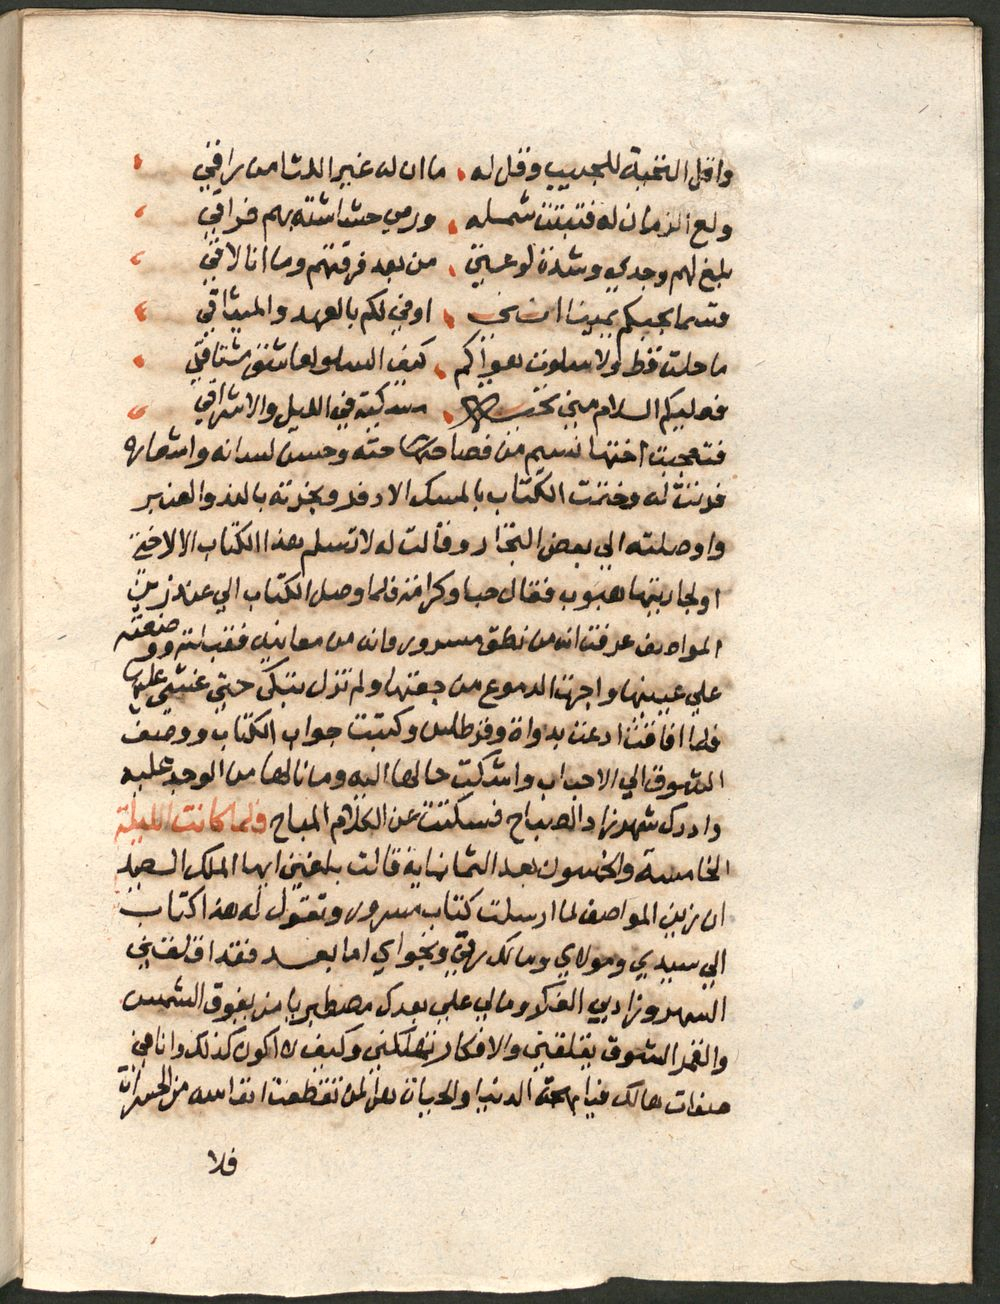 واقل التحية للحبيب وقل له ، ما ان له غير اللقا من راقي
ولع الزمان له فتبتت شمله ، ورمي حشاشته بهم فراقي
بلغ لهم وجدي وشدة لوعتي ، من بعد فرقتهم وما انا لاقي
قسما بحبكم يمينا انني ، اوفي لكم بالعهد والميثاقي
ما حلت قط ولا سلوت هواكم ، كيف السلو لعاشق مشتاقي
فعليكم السلام مني تحية ، مسكية في الليل والاشراقي
فتعجبت اختها نسيم من فصاحته وحسن لسانه واشعاره
فرقت له وختمت الكتاب بالمسك الادفر وبخرته بالند والعنبر
واوصلته الي بعض التجار وقالت له لا تسلم هذا الكتاب الا لاختي
او لجاريتها هبوب فقال حبا وكرامة فلما وصل الكتاب الي عند زين
المواصف عرفت انه من نطق مسرور وانه من معانيه فقبلته ووضعته
علي عينيها واجرت الدموع من جفنها ولم تزل تبكي حتي غشي عليها
فلما افاقت ادعت بدواة وقرطاس وكتبت جواب الكتاب ووصف
الشوق الي الاحباب واشكت حالها اليه وما نالها من الوجد عليه
وادرك شهرزاد الصباح فسكتت عن الكلام المباح فلما كانت الليلة
الخامسة والخمسون بعد الثمانماية قالت بلغني ايها الملك السعيد
ان زين المواصف لما ارسلت كتاب مسرور وتقول له هذا كتاب
الي سيدي ومولاي ومالك رقي ونجواي اما بعد فقد اقلقني
السهر وزاد بي الفكر ومالي علي بعدك مصطبر يا من يفوق الشمس
والقمر الشوق يقلقني والافكار تهلكني وكيف لا اكون كذلك وانا في
صفات هالك فيا بهجة الدنيا والحياة هل لمن تقطعت انفاسه من الحسرات
فلا